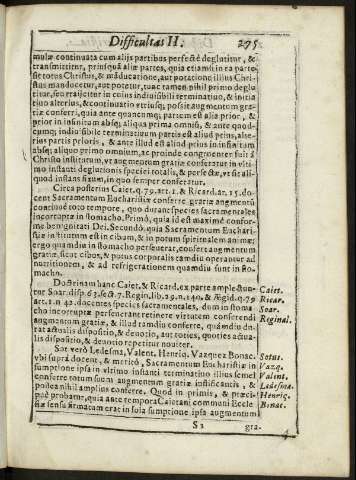 Difficultas II. 275
mulæ continuata cum alijs partibus perfectè deglutitur, &
transmittitur, priusquā aliæ partes, quia etiamsi in ea parte
sit totus Christus, & māducatione, aut potatione illius Chri-
stus manducetur, aut potetur, tunc tamen nihil primo deglu-
titur, seu traijcitur in cuius indiuisibili terminatiuo, & initia
tiuo alterius, & continuatio vtriusq; possit augmentum gra-
tiæ conferri, quia ante quancumq; partem est alia prior, &
prior in infinitum absq; aliqua primo omniū, & ante quod-
cumq; indiuisibile terminatiuum partis est aliud prius, alte-
rius partis prioris, & ante illud est aliud prius in infinitum
absq; aliquo primo omnium, ac proinde congruenter fuit à
Christo institutum, vt augmentum gratiæ conferatur in vlti-
mo instanti deglutionis speciei totalis, & perfectæ, vt sit ali-
quod instans suum, in quo semper conferatur.
Circa posterius Caiet. q. 79. art. 1. & Ricard. ar. 15. do-
cent Sacramentum Eucharistiæ conferre gratiæ augmentū
continuè toto tempore, quo durant species sacramentales
incorruptæ in stomacho. Primò, quia id est maximè confor-
me benignitati Dei. Secundò, quia Sacramentum Euchari-
stiæ institutum est in cibum, & in potum spiritualem animæ;
ergo quamdiu in stomacho perseuerat, confert augmentum
gratiæ, sicut cibus, & potus corporalis tamdiu operantur ad
nutritionem, & ad refrigerationem quamdiu sunt in sto-
macho.
Doctrinam hanc Caiet. & Ricard. ex parte amplectun-
tur Soar. disp. 63. sect. 7. Regin. lib. 29. n. 140. & Ægid. q. 79
art. 1. n. 42. docentes species sacramentales, dum in stoma
cho incorruptæ perseuerant retinere virtutem conferendi
augmentum gratiæ, & illud tamdiu conferre, quamdiu du-
rat actualis dispositio, & deuotio, aut toties, quoties actua-
lis dispositio, & deuotio repetitur nouiter.
Sat verò Ledesma, Valent. Henriq. Vazquez Bonac.
vbi supra docent, & meritò, Sacramentum Eucharistiæ in
sumptione ipsa in vltimo instanti terminatiuo illius semel
conferre totum suum augmentum gratiæ iustificantis, &
postea nihil amplius conferre. Quod in primis, & præci-
puè probatur, quia ante tempora Caietani communi Eccle
siæ sensu firmatum erat in sola sumptione ipsa augmentum
S 2 gra-
Caiet.
Ricar.
Soar.
Reginal.
Sotus.
Vazq.
Valent.
Ledesma.
Henriq.
Bonac.